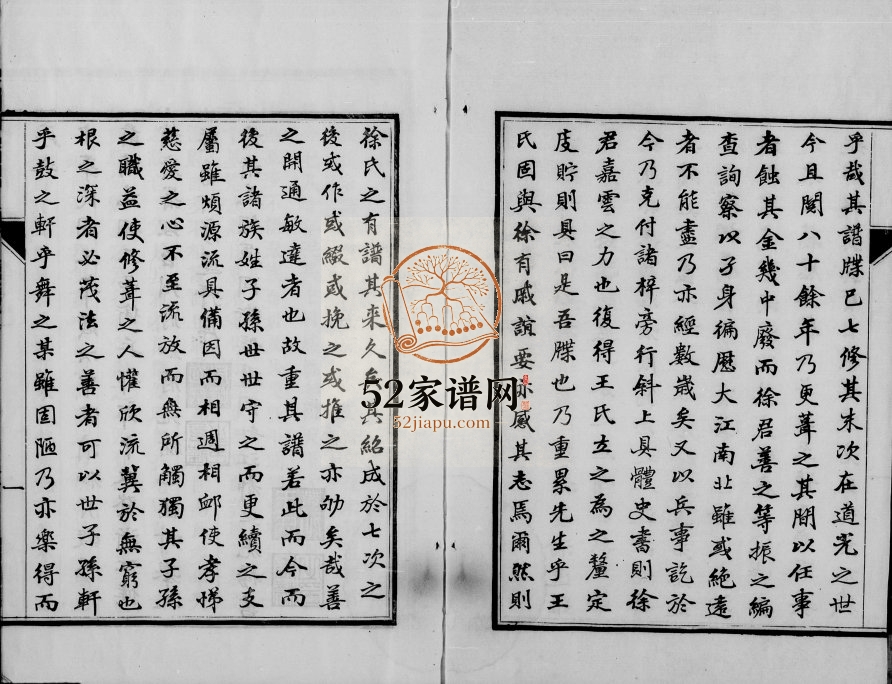 乎哉其譜牒已七修其末次在道光之世
今且閱八十餘年乃更葺之其間以任事
者蝕其金幾中廢而徐君善之等振之編
查詢察以孑身徧歷大江南北雖或絶遠
者不能盡乃亦經數歲矣又以兵事訖於
今乃克付諸梓旁行斜上具體史書則徐
君嘉雲之力也復得王氏立之為之釐定
庋貯則具曰是吾牒也乃重累先生乎王
氏固與徐有戚誼要亦感其志焉爾然則
徐氏之有譜其來久矣其紹成於七次之
後或作或綴或挽之或推之亦劬矣哉善
之開通敏達者也故重其譜若此而今而
後其諸族姓子孫世世守之而更續之支
屬雖煩源流具備因而相週相卹使孝悌
慈愛之心不至流放而無所觸獨其子孫
之職益使修葺之人懽欣流冀於無窮也
根之深者必茂法之善者可以世子孫軒
乎鼓之軒乎舞之某雖固陋乃亦樂得而
一
52家谱网
52jiapu.com